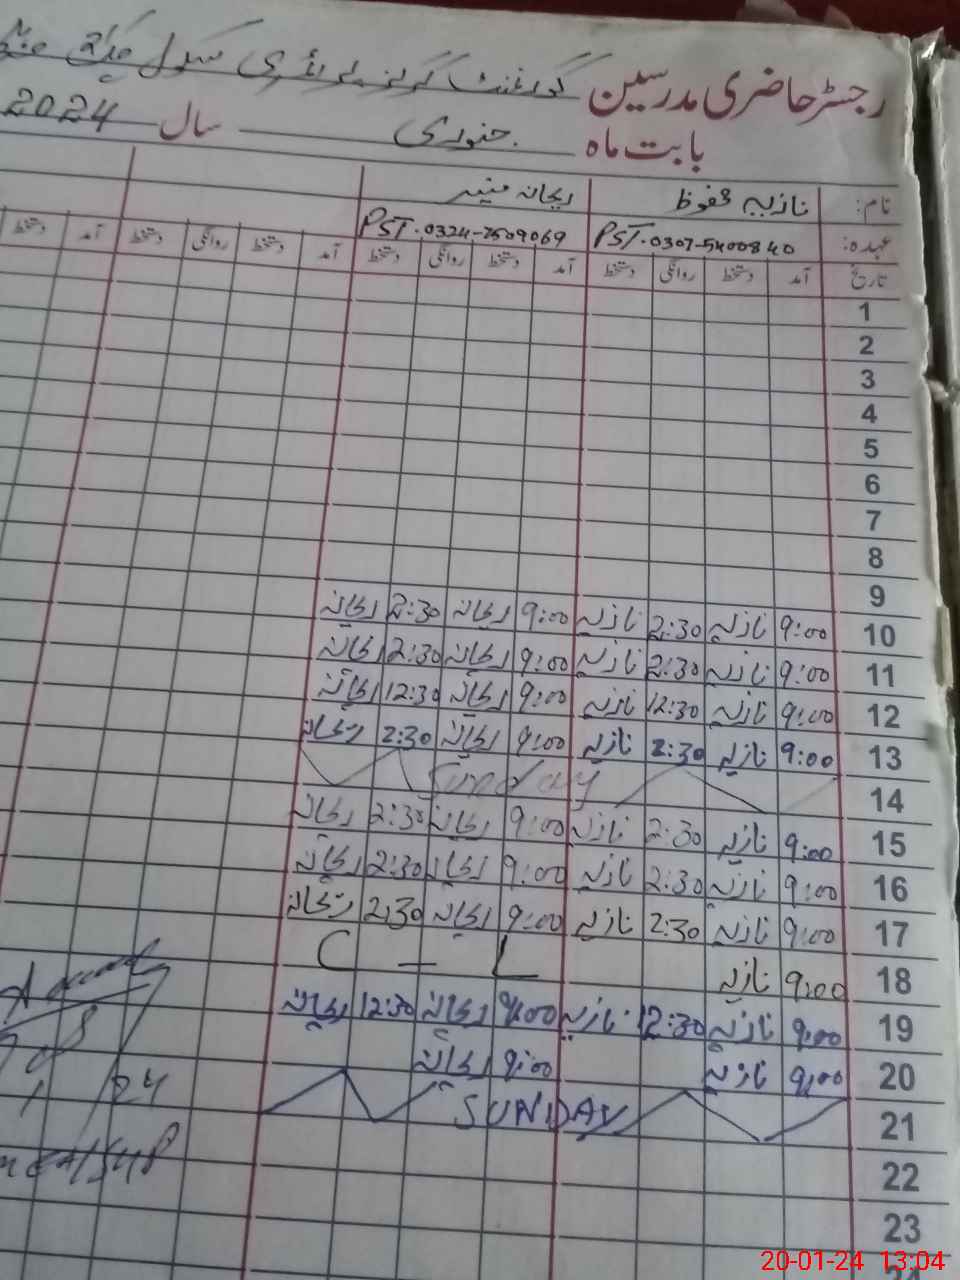 رجسٹر حاضری مدرسین گورنمنٹ گرلز پرائمری سکول
بابت ماہ جنوری سال 2024
نام: نازیہ محفوظ ریحانہ منیر
عہدہ: PST. 0307-5400840 PST. 0324-7509069
تاریخ آمد دستخط روانگی دستخط آمد دستخط روانگی دستخط آمد دستخط روانگی دستخط آمد دستخط
1
2
3
4
5
6
7
8
9
10 9:00 نازیہ 2:30 نازیہ 9:00 ریحانہ 2:30 ریحانہ
11 9:00 نازیہ 2:30 نازیہ 9:00 ریحانہ 2:30 ریحانہ
12 9:00 نازیہ 12:30 نازیہ 9:00 ریحانہ 12:30 ریحانہ
13 9:00 نازیہ 2:30 نازیہ 9:00 ریحانہ 2:30 ریحانہ
14 Sunday
15 9:00 نازیہ 2:30 نازیہ 9:00 ریحانہ 2:30 ریحانہ
16 9:00 نازیہ 2:30 نازیہ 9:00 ریحانہ 2:30 ریحانہ
17 9:00 نازیہ 2:30 نازیہ 9:00 ریحانہ 2:30 ریحانہ
18 9:00 نازیہ C - L
19 9:00 نازیہ 12:30 نازیہ 9:00 ریحانہ 12:30 ریحانہ
20 9:00 نازیہ 9:00 ریحانہ
21 SUNDAY
22
23
24
20-01-24 13:04